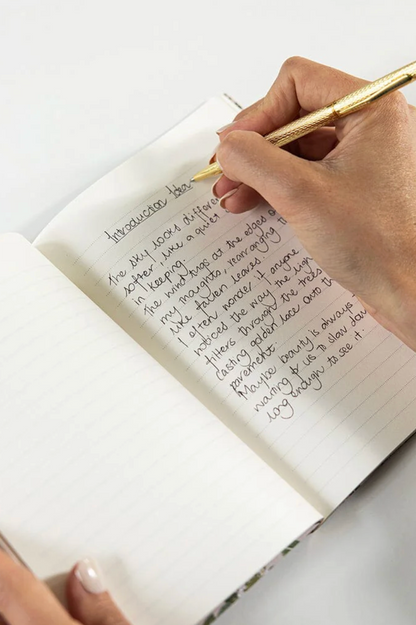 Introduction Idea
The sky looks differe
softer, like a quiet
in keeping.
The wind tugs at the edges o
my thoughts, rearranging
like fallen leaves.
I often wonder if anyone
notices the way the ligh
filters through the trees
casting golden lace onto th
pavement.
Maybe beauty is always
waiting for us to slow dow
long enough to see it.